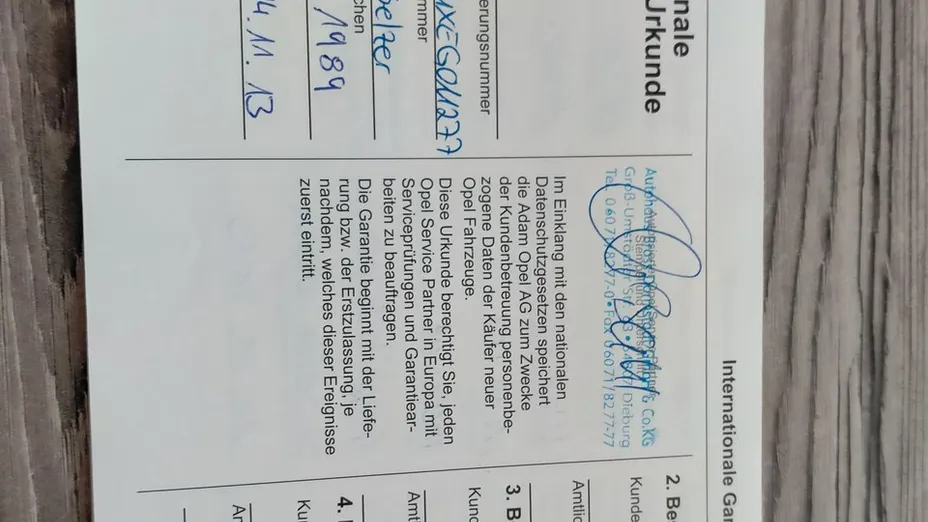 nale
Urkunde
erungsnummer
UXEG011277
mmer
elzer
chen
1989
4.11.13
Groß-Umstädter Str.
Dieburg
& Co.KG
Tel. 06071/8277-0 • Fax 06071/8277-77
Im Einklang mit den nationalen
Datenschutzgesetzen speichert
die Adam Opel AG zum Zwecke
der Kundenbetreuung personenbe-
zogene Daten der Käufer neuer
Opel Fahrzeuge.
Diese Urkunde berechtigt Sie, jeden
Opel Service Partner in Europa mit
Serviceprüfungen und Garantiear-
beiten zu beauftragen.
Die Garantie beginnt mit der Liefe-
rung bzw. der Erstzulassung, je
nachdem, welches dieser Ereignisse
zuerst eintritt.
Internationale Gar
2. Be
Kunde
Amtlic
3. B
Kunc
Amt
4.
Ku
Ar